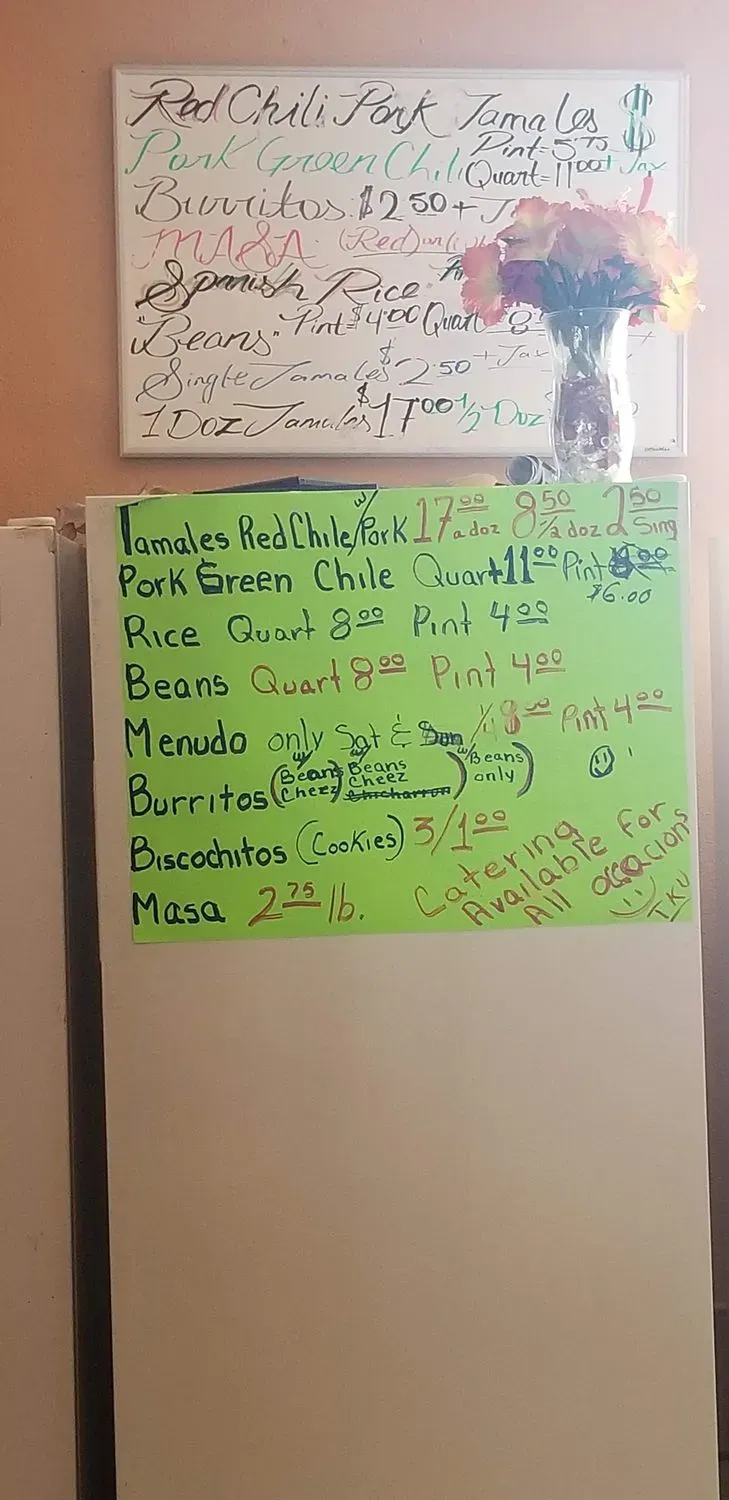 Red Chili Pork Tamales $
Pork Green Chili Pint=5.75
Quart=11.00 + Tax
Burritos $2.50 +
MASA: (Red) only
Spanish Rice
"Beans" Pint=$4.00 Quart
Single Tamales $2.50 + Tax
1 Doz Tamales $17.00 1/2 Doz
Tamales Red Chile w/ Pork 17.00 a doz 8.50 1/2 doz 2.50 Sing
Pork Green Chile Quart 11.00 Pint
$6.00
Rice Quart 8.00 Pint 4.00
Beans Quart 8.00 Pint 4.00
Menudo only Sat & Sun 8.00 Pint 4.00
Burritos (w/ Beans Cheez w/ Beans Cheez Chicharron) w/ Beans only)
Biscochitos (Cookies) 3/1.00
Masa 2.75 lb.
Catering
Available For
All occacions
TKU